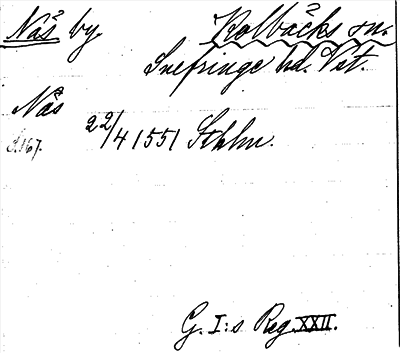 Näs by. Kolbäcks sn.
Snefringe hd. Vst.
Näs
S.167. 22/4 1551 Sthlm.
G. I:s Reg. XXII.